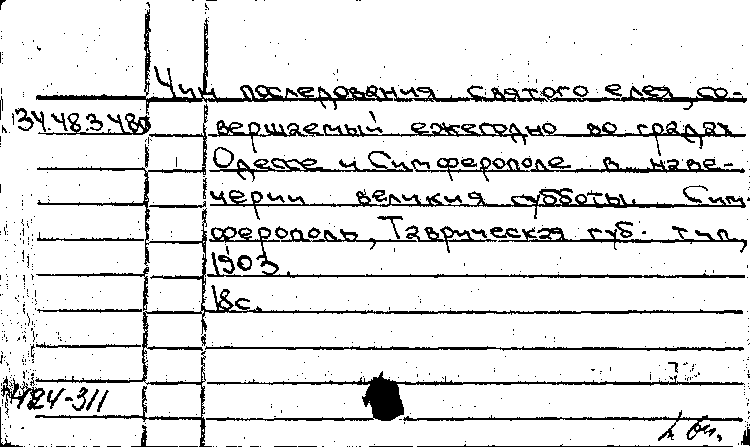 Чин последования святого елея, со-
34.48.3.480 вершаемый ежегодно во градах
Одессе и Симферополе в наве-
черии великия субботы. Сим-
ферополь, Таврическая губ. тип.,
1903.
18 с.
424-311